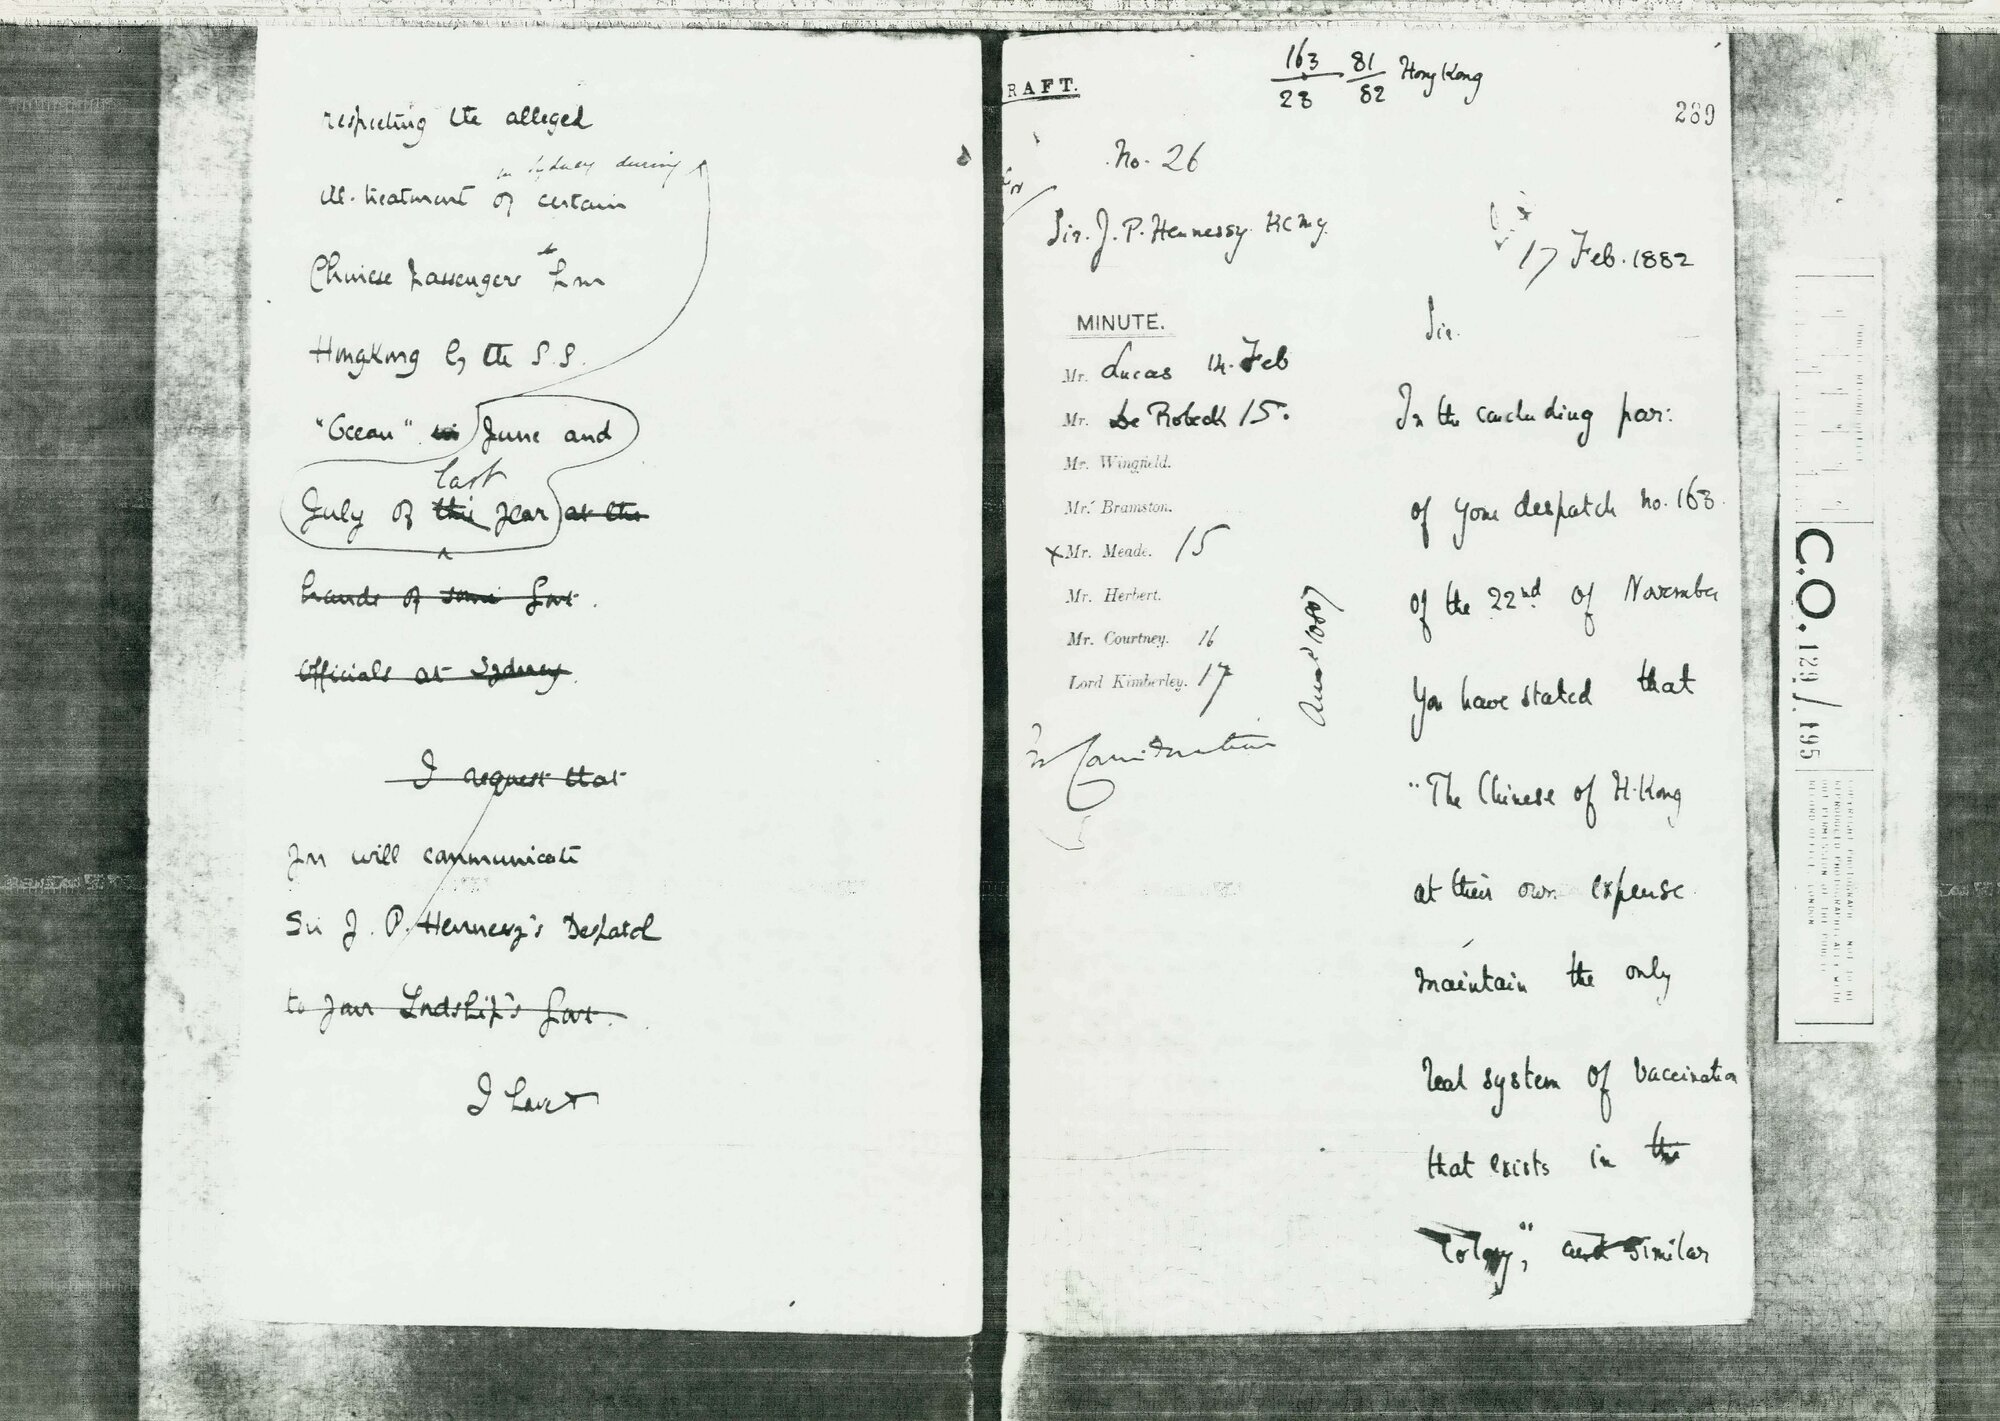 respecting the alleged
in Sydney during
ill-treatment of certain
Chinese passengers to & from
HongKong by the S.S.
"Ocean" in June and
last
July of this year at the
hands of some Govt.
Officials at Sydney.
I request that
you will communicate
Sir J. P. Hennessy's Despatch
to your Lordship's Govt.
I have
RAFT.
163 81 Hong Kong
28 82
289
No. 26
Sir. J. P. Hennessy. KCMG.
17 Feb. 1882
MINUTE.
Mr. Lucas 14. Feb
Mr. De Robeck 15.
Mr. Wingfield.
Mr. Bramston.
x Mr. Meade. 15
Mr. Herbert.
Mr. Courtney. 16
Lord Kimberley. 17
for Consideration
Sir.
In the concluding par:
of your despatch no. 163
of the 22nd of November
you have stated that
"The Chinese of H. Kong
at their own expense
maintain the only
real system of vaccination
that exists in the
Colony," and similar
C.O. 129/195